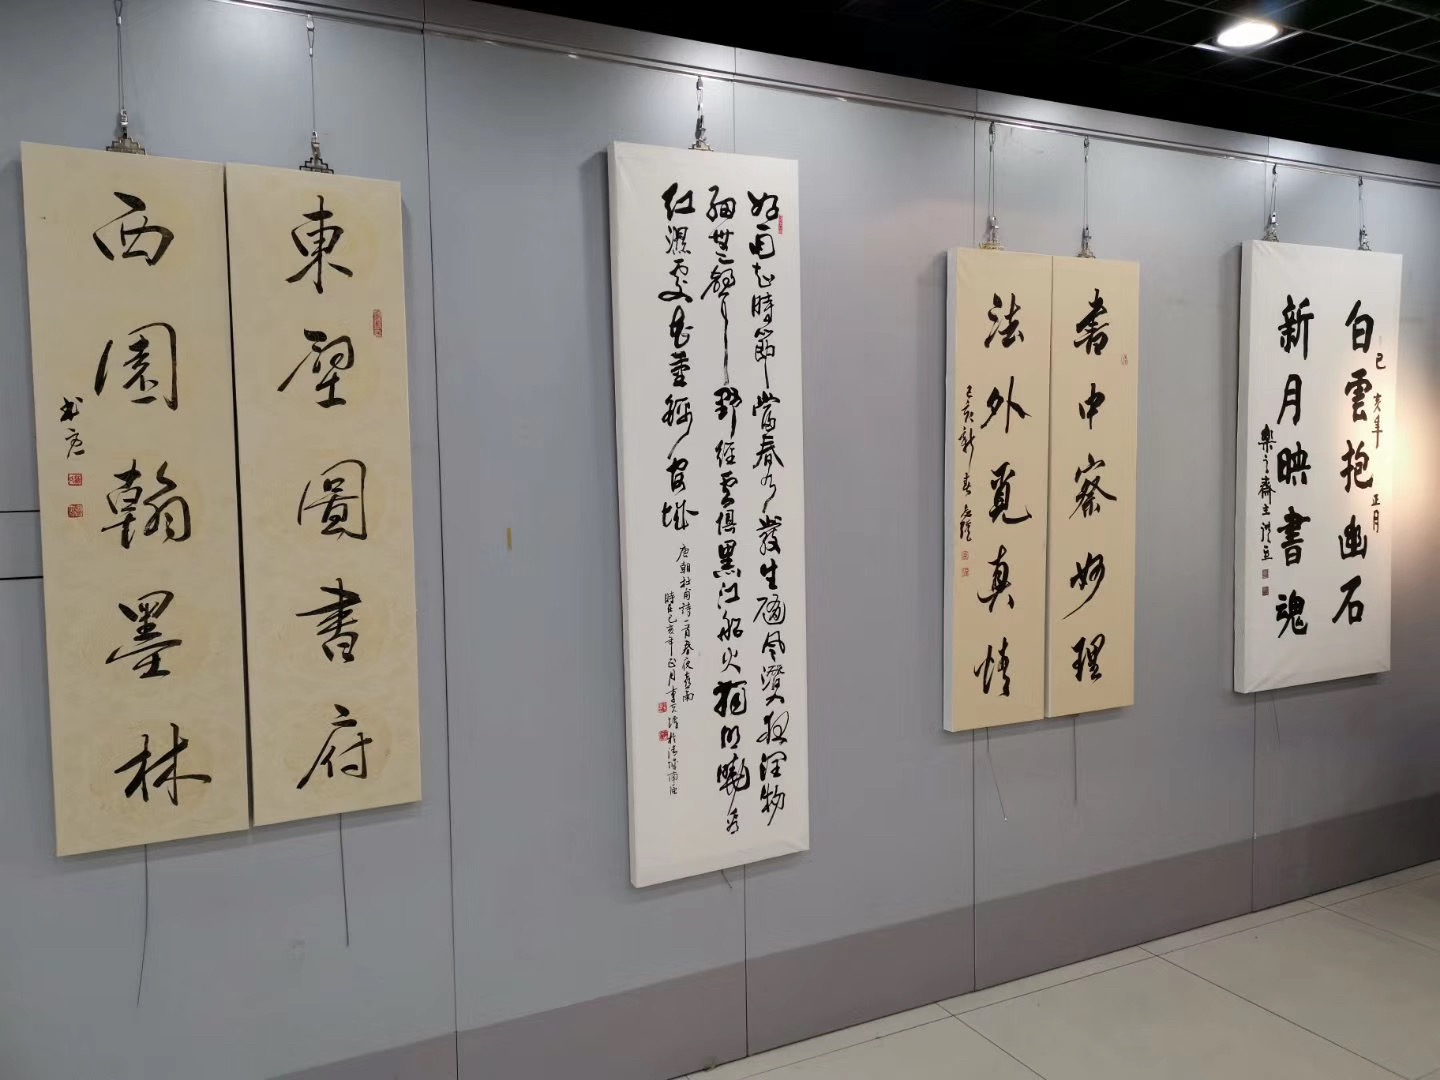 東壁圖書府
西園翰墨林
好雨知時節當春乃發生隨風潛入夜潤物
細無聲野徑雲俱黑江船火獨明曉看
紅濕處花重錦官城
唐朝杜甫詩一首春夜喜雨
時在己亥年正月李
書中察妙理
法外覓真情
己亥新春
白雲抱幽石
己亥年正月
新月映書魂
樂之齋主